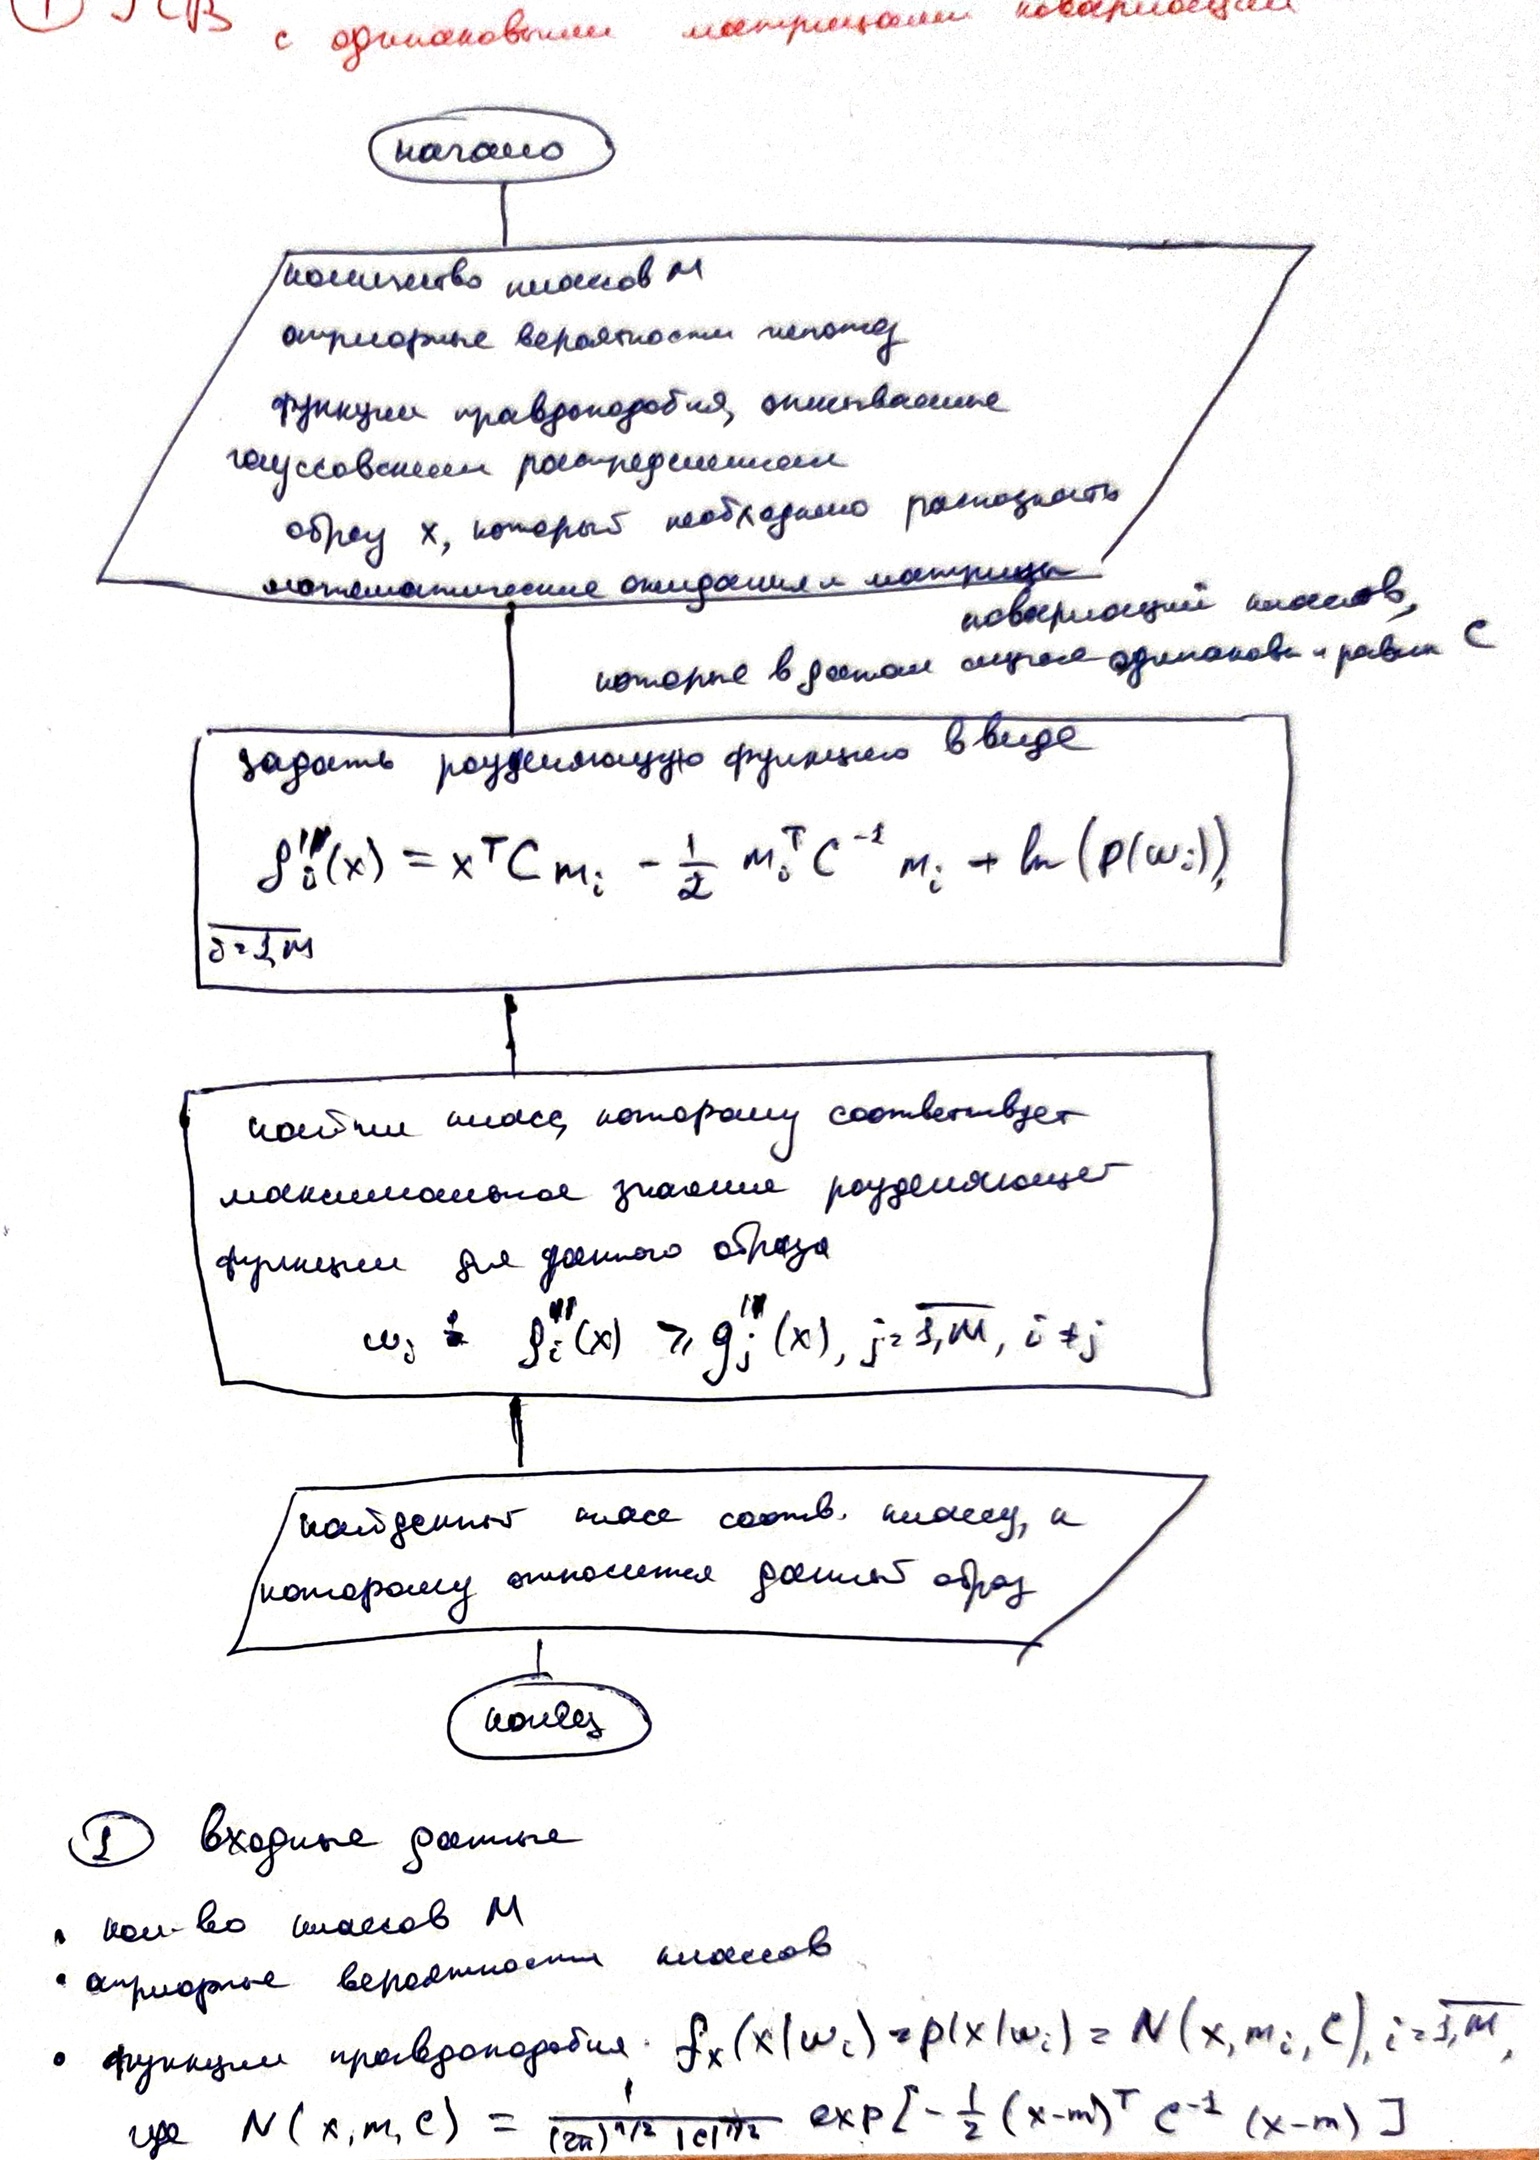 ① ГСВ
с одинаковыми матрицами ковариаций
начало
количество классов M
априорные вероятности гипотез
функции правдоподобия, описываемые
гауссовским распределением
образ x, который необходимо распознать
математические ожидания и матрицы
ковариаций классов,
которые в данном случае одинаковы и равны C
задать разделяющую функцию в виде
g_i'''(x) = x^T C m_i - 1/2 m_i^T C^-1 m_i + ln(p(w_i)),
i=1,M
найти класс, которому соответствует
максимальное значение разделяющей
функции для данного образа
w_i : g_i'''(x) ≥ g_j'''(x), j=1,M, i≠j
найденный класс соотв. классу, к
которому относится данный образ
конец
① входные данные
• кол-во классов M
• априорные вероятности классов
• функции правдоподобия. f_x(x|w_i) = p(x|w_i) = N(x, m_i, C), i=1,M,
где N(x, m, C) = 1/((2π)^n/2 |C|^1/2) exp[-1/2 (x-m)^T C^-1 (x-m)]